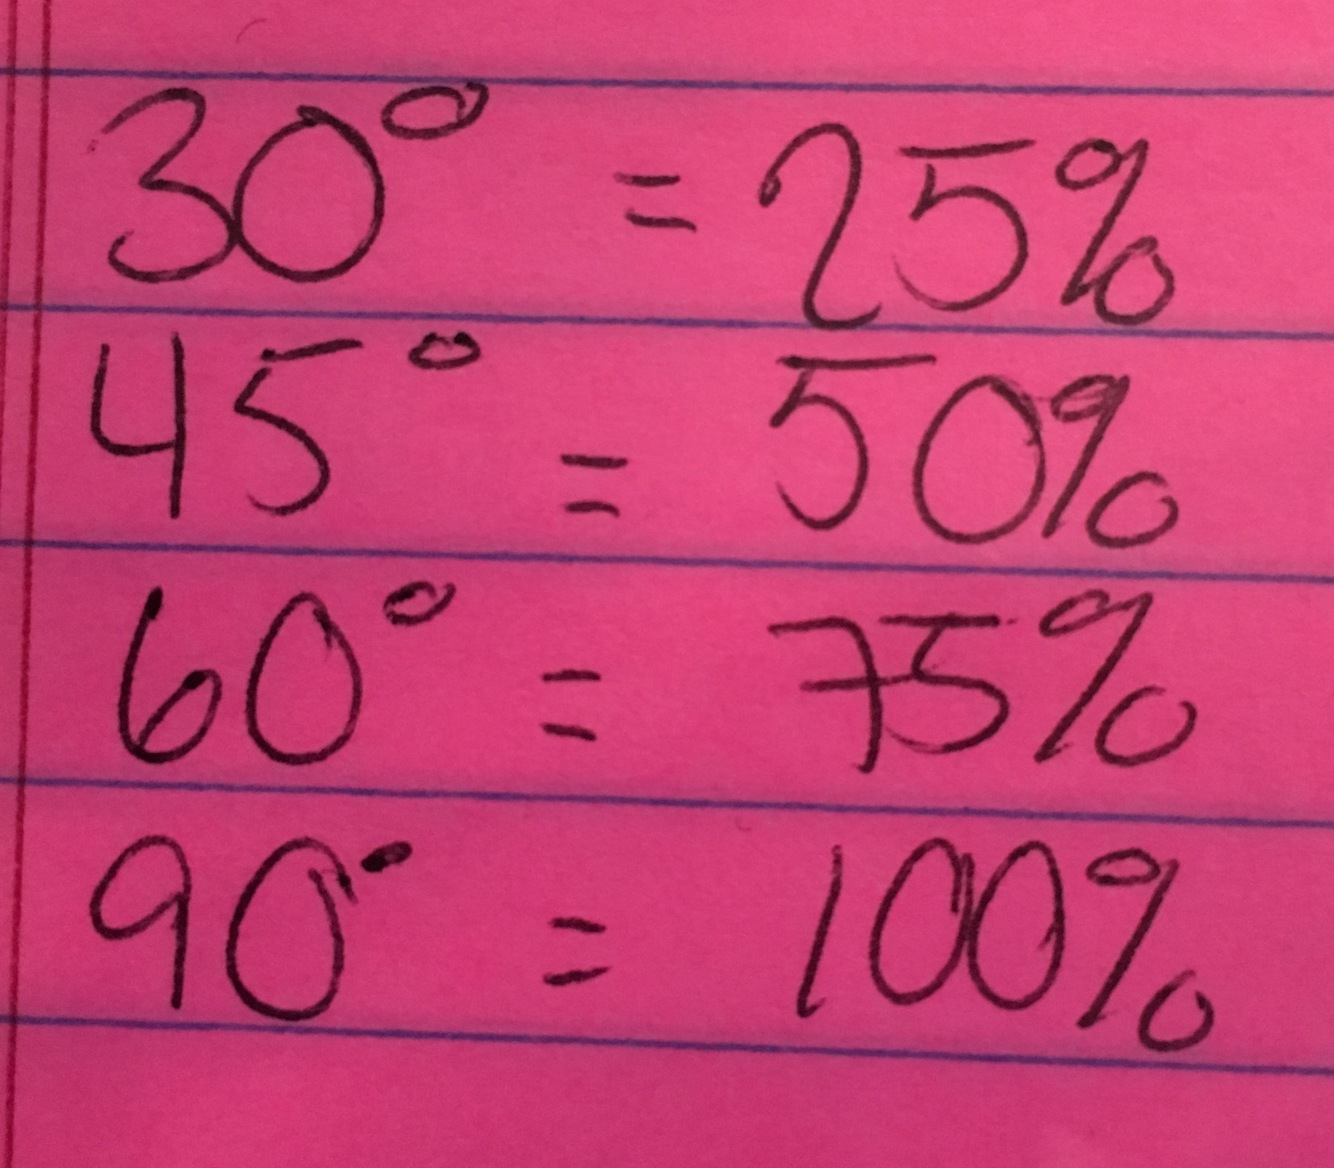 30° = 25%
45° = 50%
60° = 75%
90° = 100%